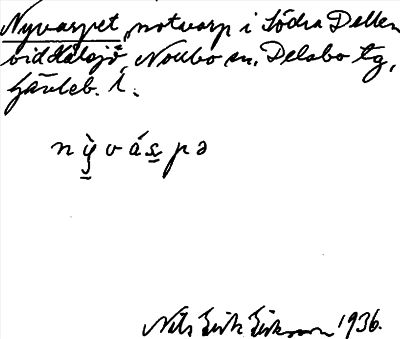 Nyvarpet, notvarp i Södra Dellen
vid Hälsjö, Norrbo sn, Delsbo tg,
Gävleb. l.
nỳváspə
Nils Erik Eriksson 1936.